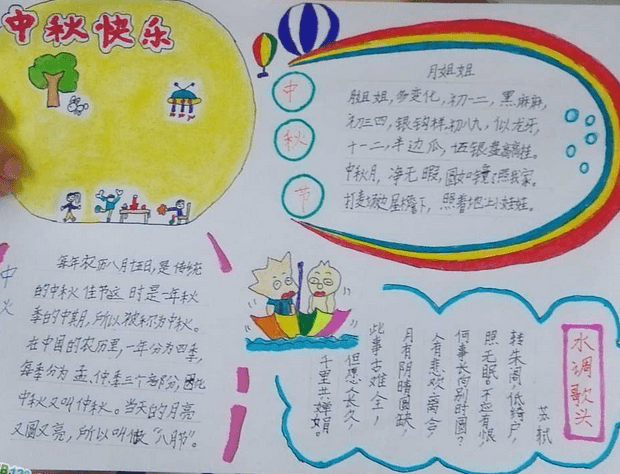 中秋快乐
中
秋
节
月姐姐
月姐姐,多变化,初一二,黑麻麻,
初三四,银钩样.初八九,似龙牙,
十一二,半边瓜,
中秋月,净无暇,圆如镜子照我家。
打麦场边屋檐下,照着地上小娃娃。
中
每年农历八月十五日,是传统
的中秋佳节这时是一年秋
季的中期,所以被称为中秋。
在中国的农历里,一年分为四季,
每季分为孟、仲、季三个部分,因此
中秋又叫仲秋。当天的月亮
又圆又亮,所以叫做“八月节”。
水调歌头
苏轼
转朱阁,低绮户,
照无眠。不应有恨,
何事长向别时圆?
人有悲欢离合,
月有阴晴圆缺,
此事古难全,
但愿人长久,
千里共婵娟。